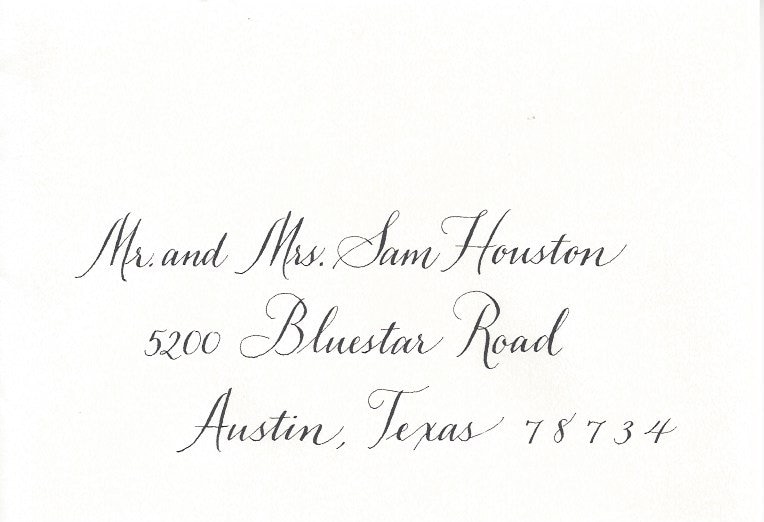 Mr. and Mrs. Sam Houston
5200 Bluestar Road
Austin, Texas 78734